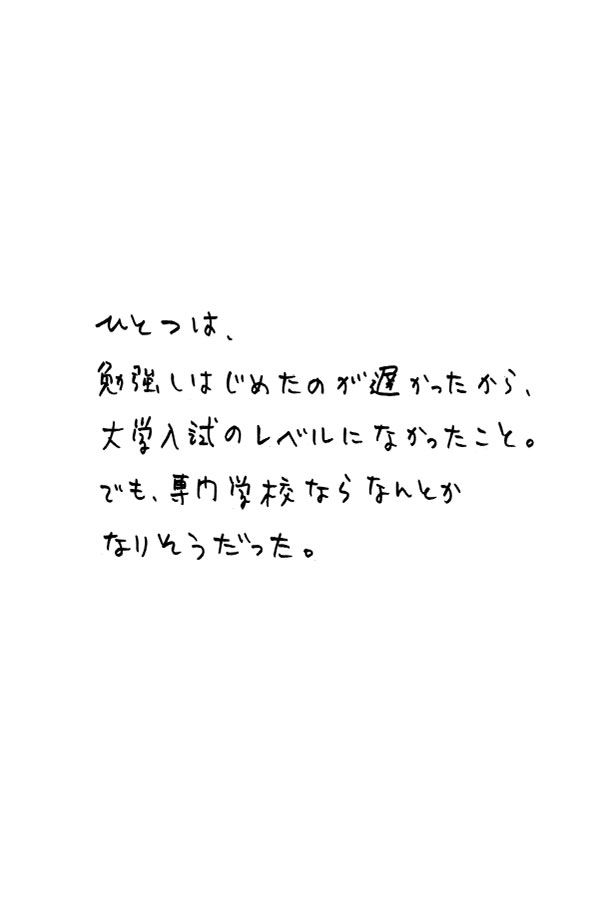 ひとつは、
勉強しはじめたのが遅かったから、
大学入試のレベルになかったこと。
でも、専門学校ならなんとか
なりそうだった。